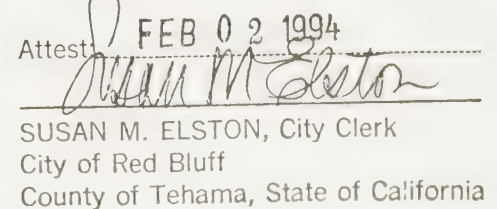 Attest: FEB 02 1994
Susan M Elston
SUSAN M. ELSTON, City Clerk
City of Red Bluff
County of Tehama, State of California